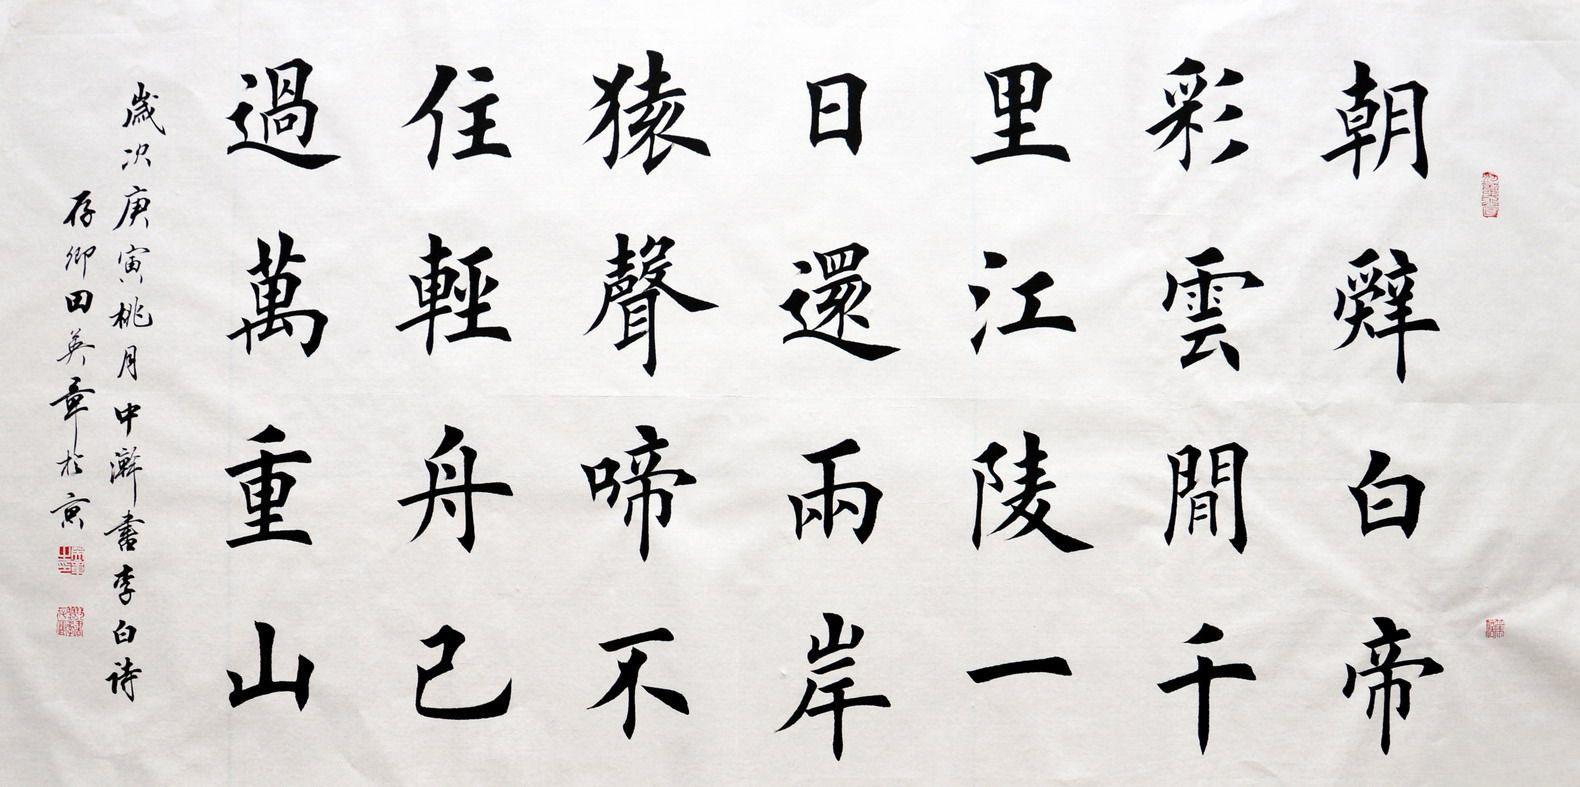 朝辤白帝
彩雲間千
里江陵一
日還兩岸
猿聲啼不
住輕舟已
過萬重山
歲次庚寅桃月中澣書李白诗
存卿田英章於京